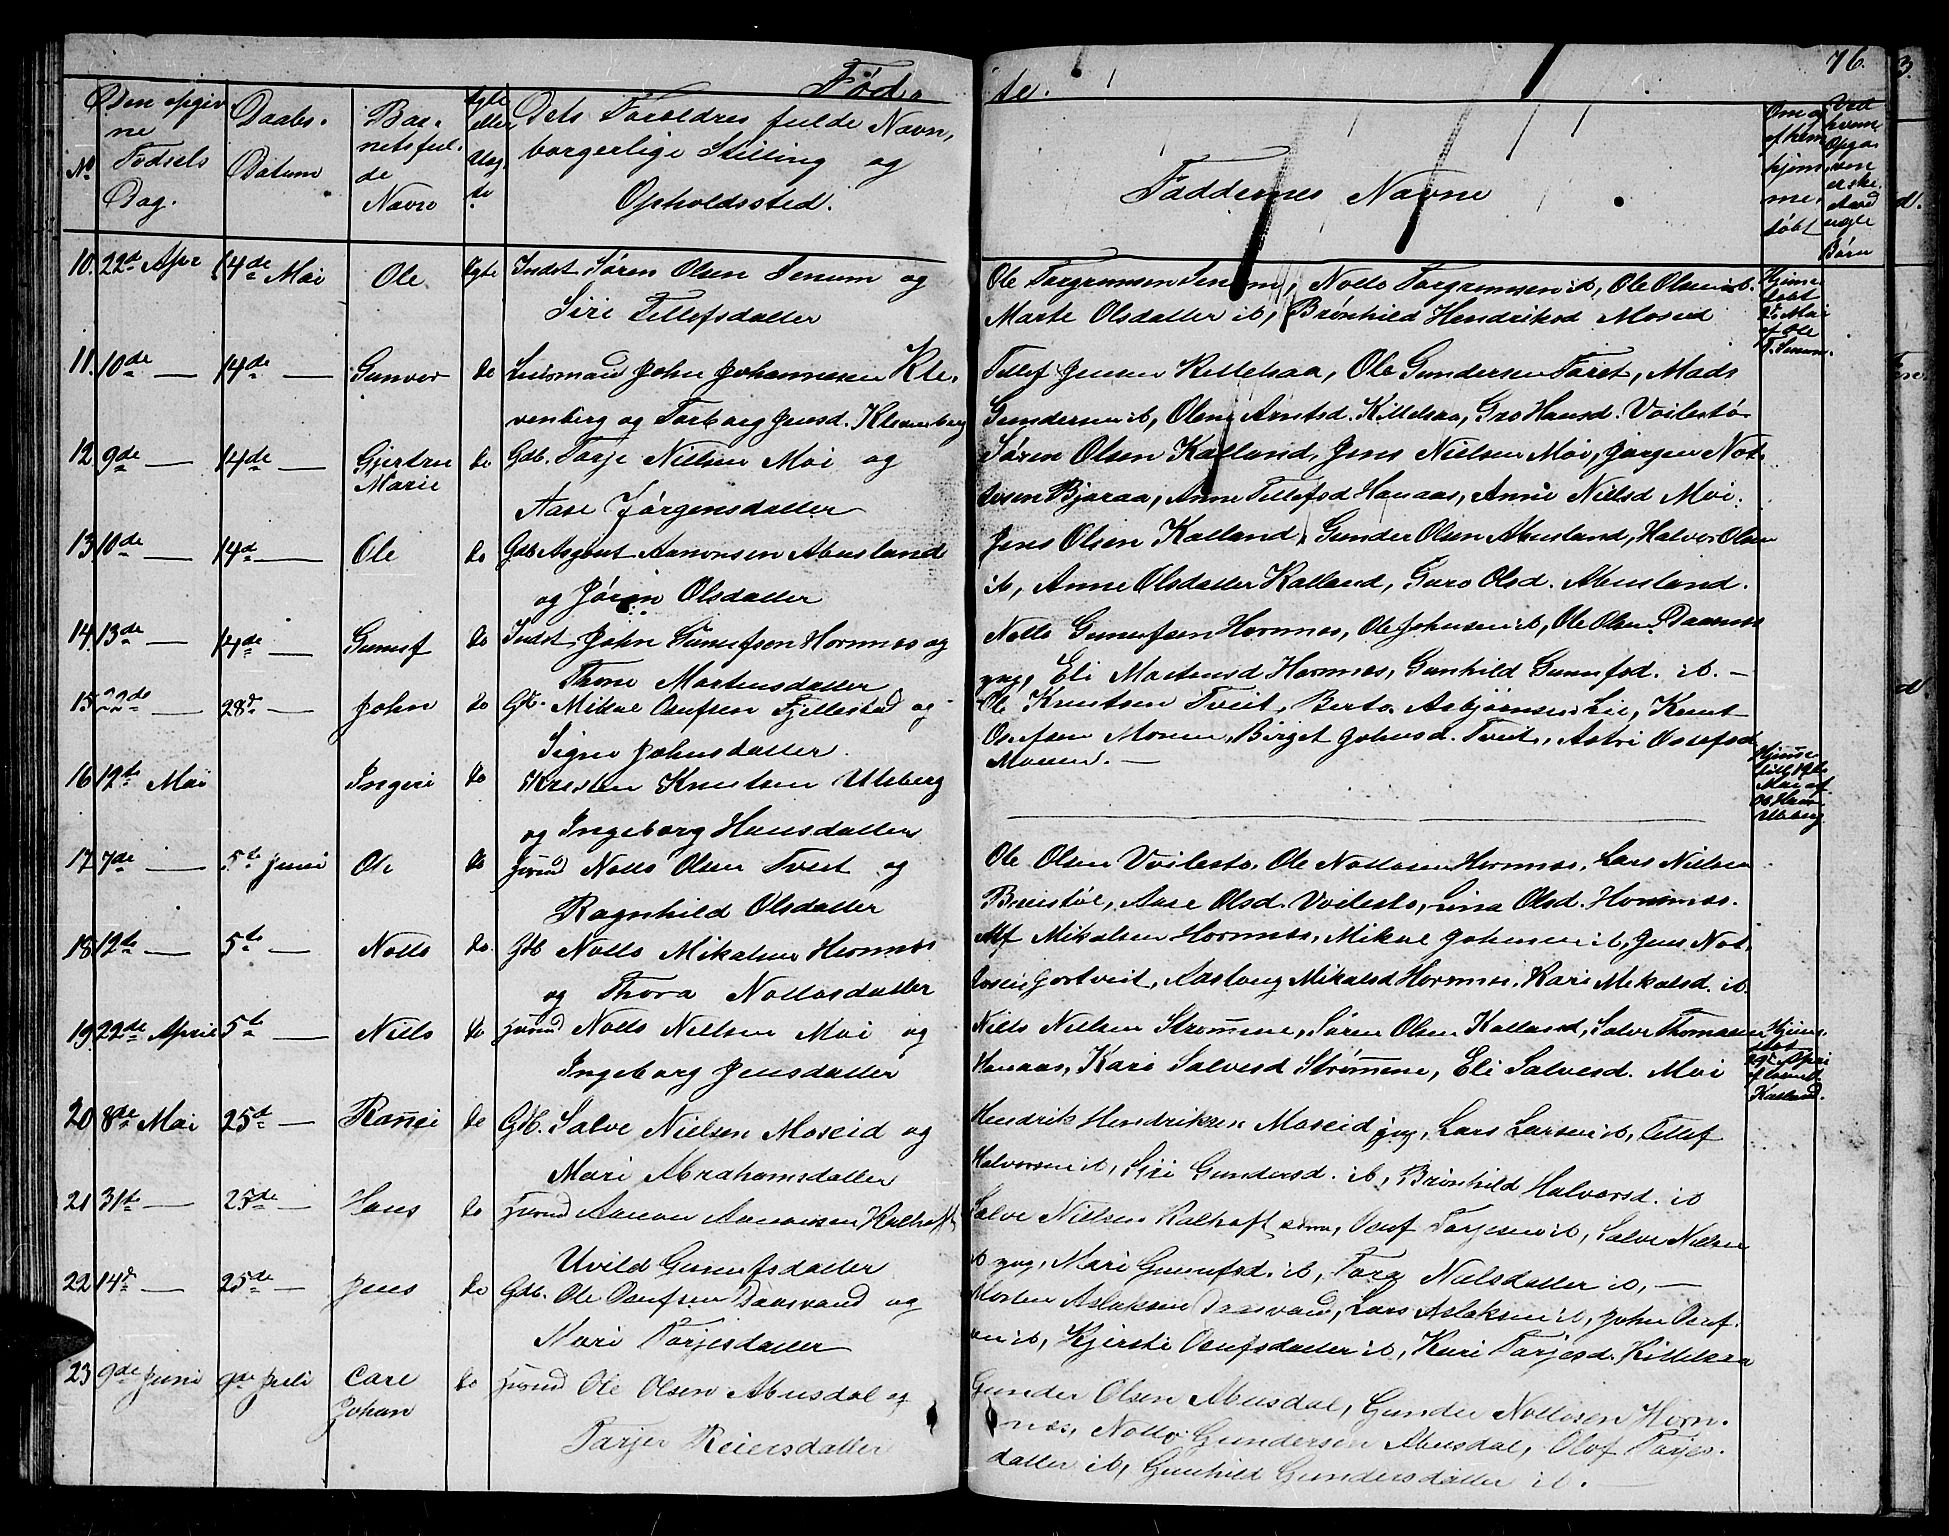 Fødte.
76.
No
Den opgivne Fødsels Dag.
Daabs-Datum
Barnets fulde Navn
Ægte eller Uægte
Dets Forældres fulde Navn, borgerlige Stilling og Opholdssted.
Faddernes Navne
Om og af hvem hjemmedøbt
10. 22de Apr 14de Mai Ole Ægte Indst. Søren Olsen Senum og
Siri Tellefsdatter
Ole Torgrimsen Senum, Notto Torgrimsen ib, Ole Olsen ib.
Marte Olsdatter ib, Brønhild Hendriksd Moseid
Hjemmedøbt
Mai
af Ole
T. Senum.
11. 10de — 14de — Gunvor do Huusmand John Johannesen Kle-
venberg og Torborg Jensd. Klevenberg
Tellef Jensen Killehaa, Ole Gundersen Føret, Mads
Gundersen ib, Arntsd. Killehaa, Gro Hansd. Voilestø
12. 9de — 14de — Gjertru Marie do Gdb. Torje Nielsen Moi og
Aase Jørgensdatter
Søren Olsen Kalland, Jens Nielsen Moi, Jørgen Not-
tosen Bjoraa, Anne Tellefsd Hanaas, Anne Nielsd Moi.
13. 10de — 14d — Ole do Gdb Asgout Aanonsen Abusland
og Jørin Olsdatter
Jens Olsen Kalland, Gunder Olsen Abusland, Halvor Olsen
ib, Anne Olsdatter Kalland, Guro Olsd. Abusland.
14. 13de — 14de — Gunuf do Indst. John Gunufsen Hornnes og
Thone Mortensdatter
Notto Gunufsen Hornnes, Ole Johnsen ib, Ole Olsen
gug, Eli Mortensd Hornnes, Gunhild Gunufsd. ib. —
15 22de — 28d — John do Gb. Mikal Osufsen Fjellestad og
Signe Johnsdatter.
Ole Knutsen Tveit, Berto Asbjørnsen Lie, Knut
Osufsen Moren, Birget Johnsd. Tveit, Astri Osufsd
Moren. —
16 19de Mai Ingeri do Kresten Knutsen Uleberg
og Ingeborg Hansdatter
Hjemmedøbt 19de
Mai af
Ole Hans
Uleberg
17 7de — 5te Juni Ole do Jordbd Notto Olsen Tveit og
Ragnhild Olsdatter
Ole Olsen Voilestø, Ole Nottosen Hornnes, Lars Nielsen
Breistøl, Aase Olsd. Voilestø, Lina Olsd. Hornnes.
18 12te — 5te — Notto do. Gdb Notto Mikalsen Hornnes
og Thora Nottosdatter
Alf Mikalsen Hornnes, Mikal Johnsen ib, Jens Not-
tosen Gortveit, Aasborg Mikalsd Hornnes, Kari Mikalsd. ib.
19 22de April 5te — Niels do Notto Nielsen Moi og
Ingeborg Jensdatter
Niels Nielsen Strømme, Søren Olsen Kalland, Salve Thomasen
Hanaas, Kari Salvesd Strømme, Eli Salvesd. Moi
Hjemmedøbt
April
Kalland.
20 8de Mai 25d — Rannei do Gdb. Salve Nielsen Moseid og
Mari Abrahamsdatter
Hendrik Hendriksen Moseid gug, Lars Larsen ib, Tellef
Halvorsen ib, Siri Gundersd. ib, Brønhild Halvorsd. ib
21 31te — 25de — Hans do Aanon Aanonsen Kalhoft
Uvild Gunufsdatter
Salve Nielsen Kalhoft, Osuf Torjesen ib, Salve Nielsen
ib gug, Mari Gunufsd. ib, Torg Nielsdatter ib, —
22 14d — 25de — Jens do Gdb. Ole Osufsen Daasvand og
Mari Torjesdatter
Morten Aslaksen Daasvand, Lars Aslaksen ib, John Osuf-
sen ib, Kjersti Osufsdatter ib, Kari Torjesd. Killehaa
23 9de Juni 9de Juli Carl Johan do Ole Olsen Abusdal og
Torjer Reiersdatter
Gunder Olsen Abusdal, Gunder Nottosen Horn-
nes, Notto Gundersen Abusdal, Olof Torjes-
datter ib, Gunhild Gundersdatter ib. —